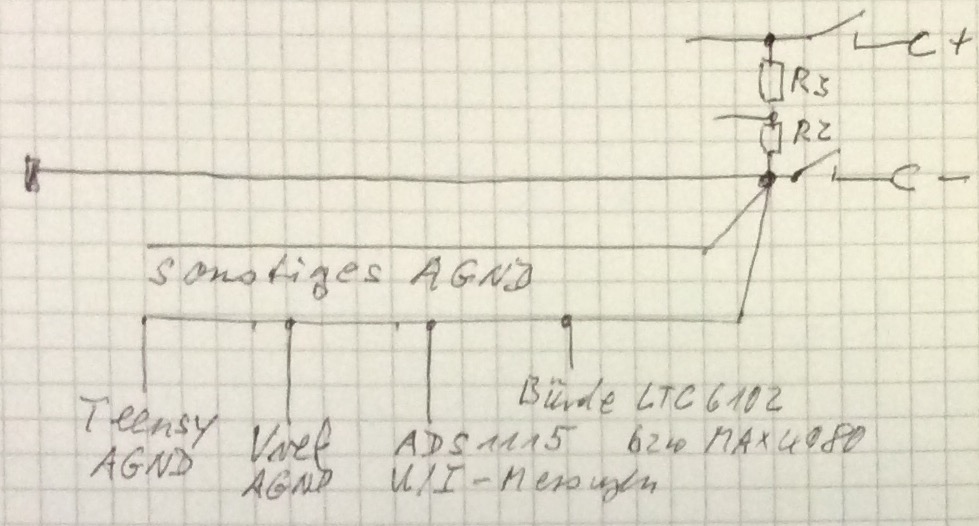 C +
R3
R2
C -
sonstiges AGND
Bürde LTC6102
Teensy Vref ADS1115 bzw MAX4080
AGND AGND U/I-Messungen